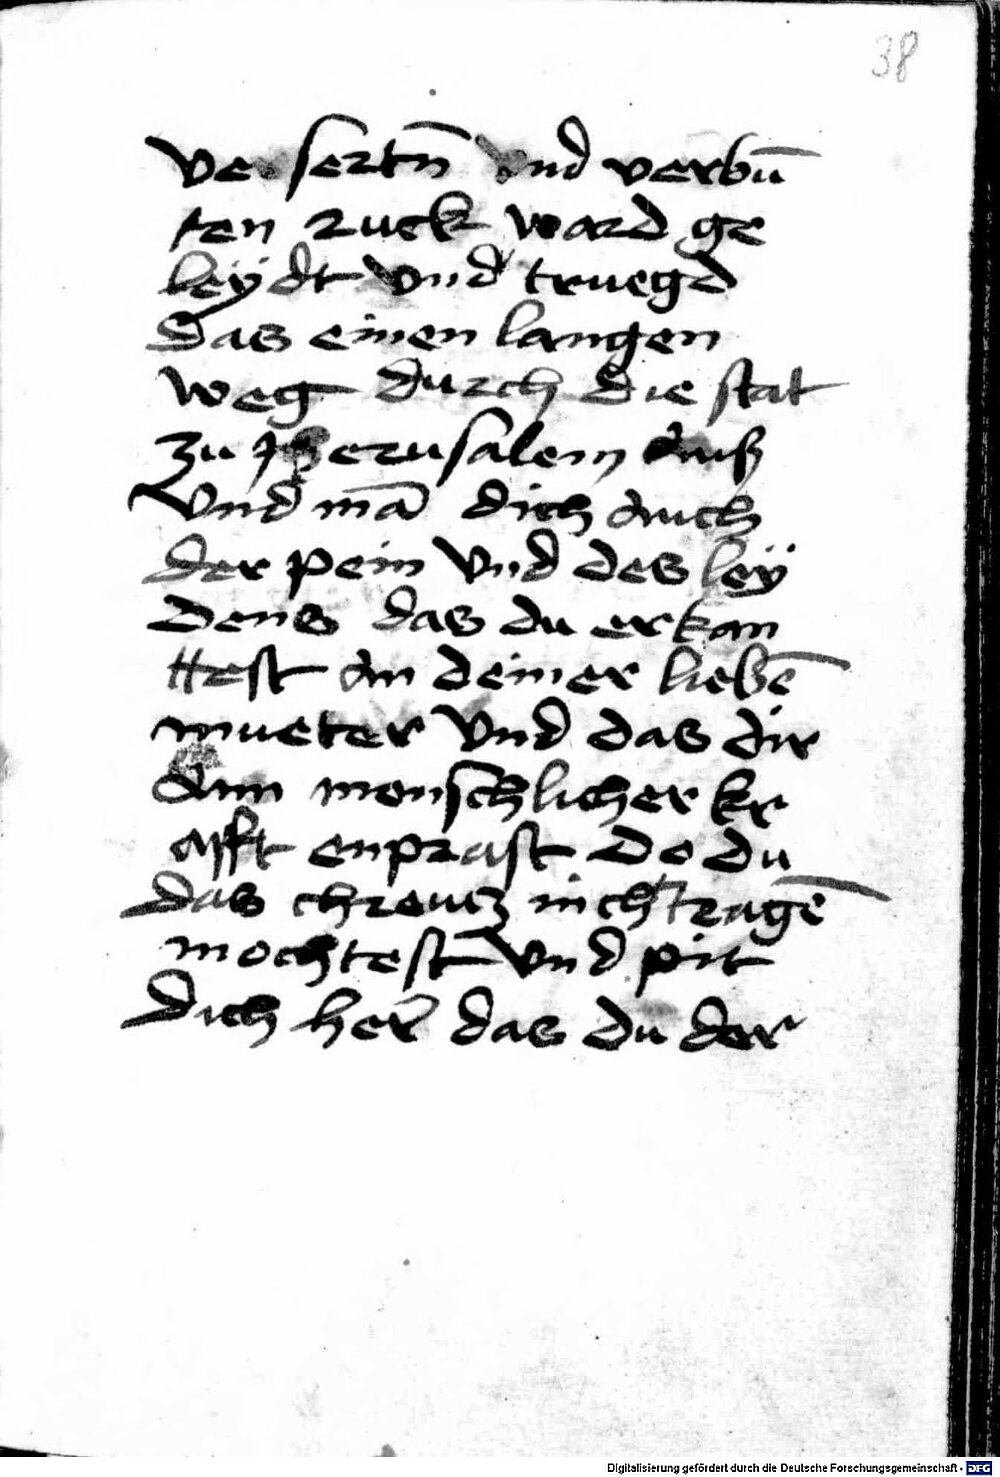 38
versertn̄ vnd verbū
ten ruck ward ge
leÿdt vnd truegd
das einen langen
weg durch die stat
zu Jherusalem auß
Vnd mā dich auch
der pein Vnd des leÿ
dens das du erkan
ttest an deiner liebē
mueter Vnd das dir
ann menschlicher kr
afft enprast do du
das chreucz nicht tragē
mochtest Vnd pit
dich her̄ das du der
Digitalisierung gefördert durch die Deutsche Forschungsgemeinschaft - DFG